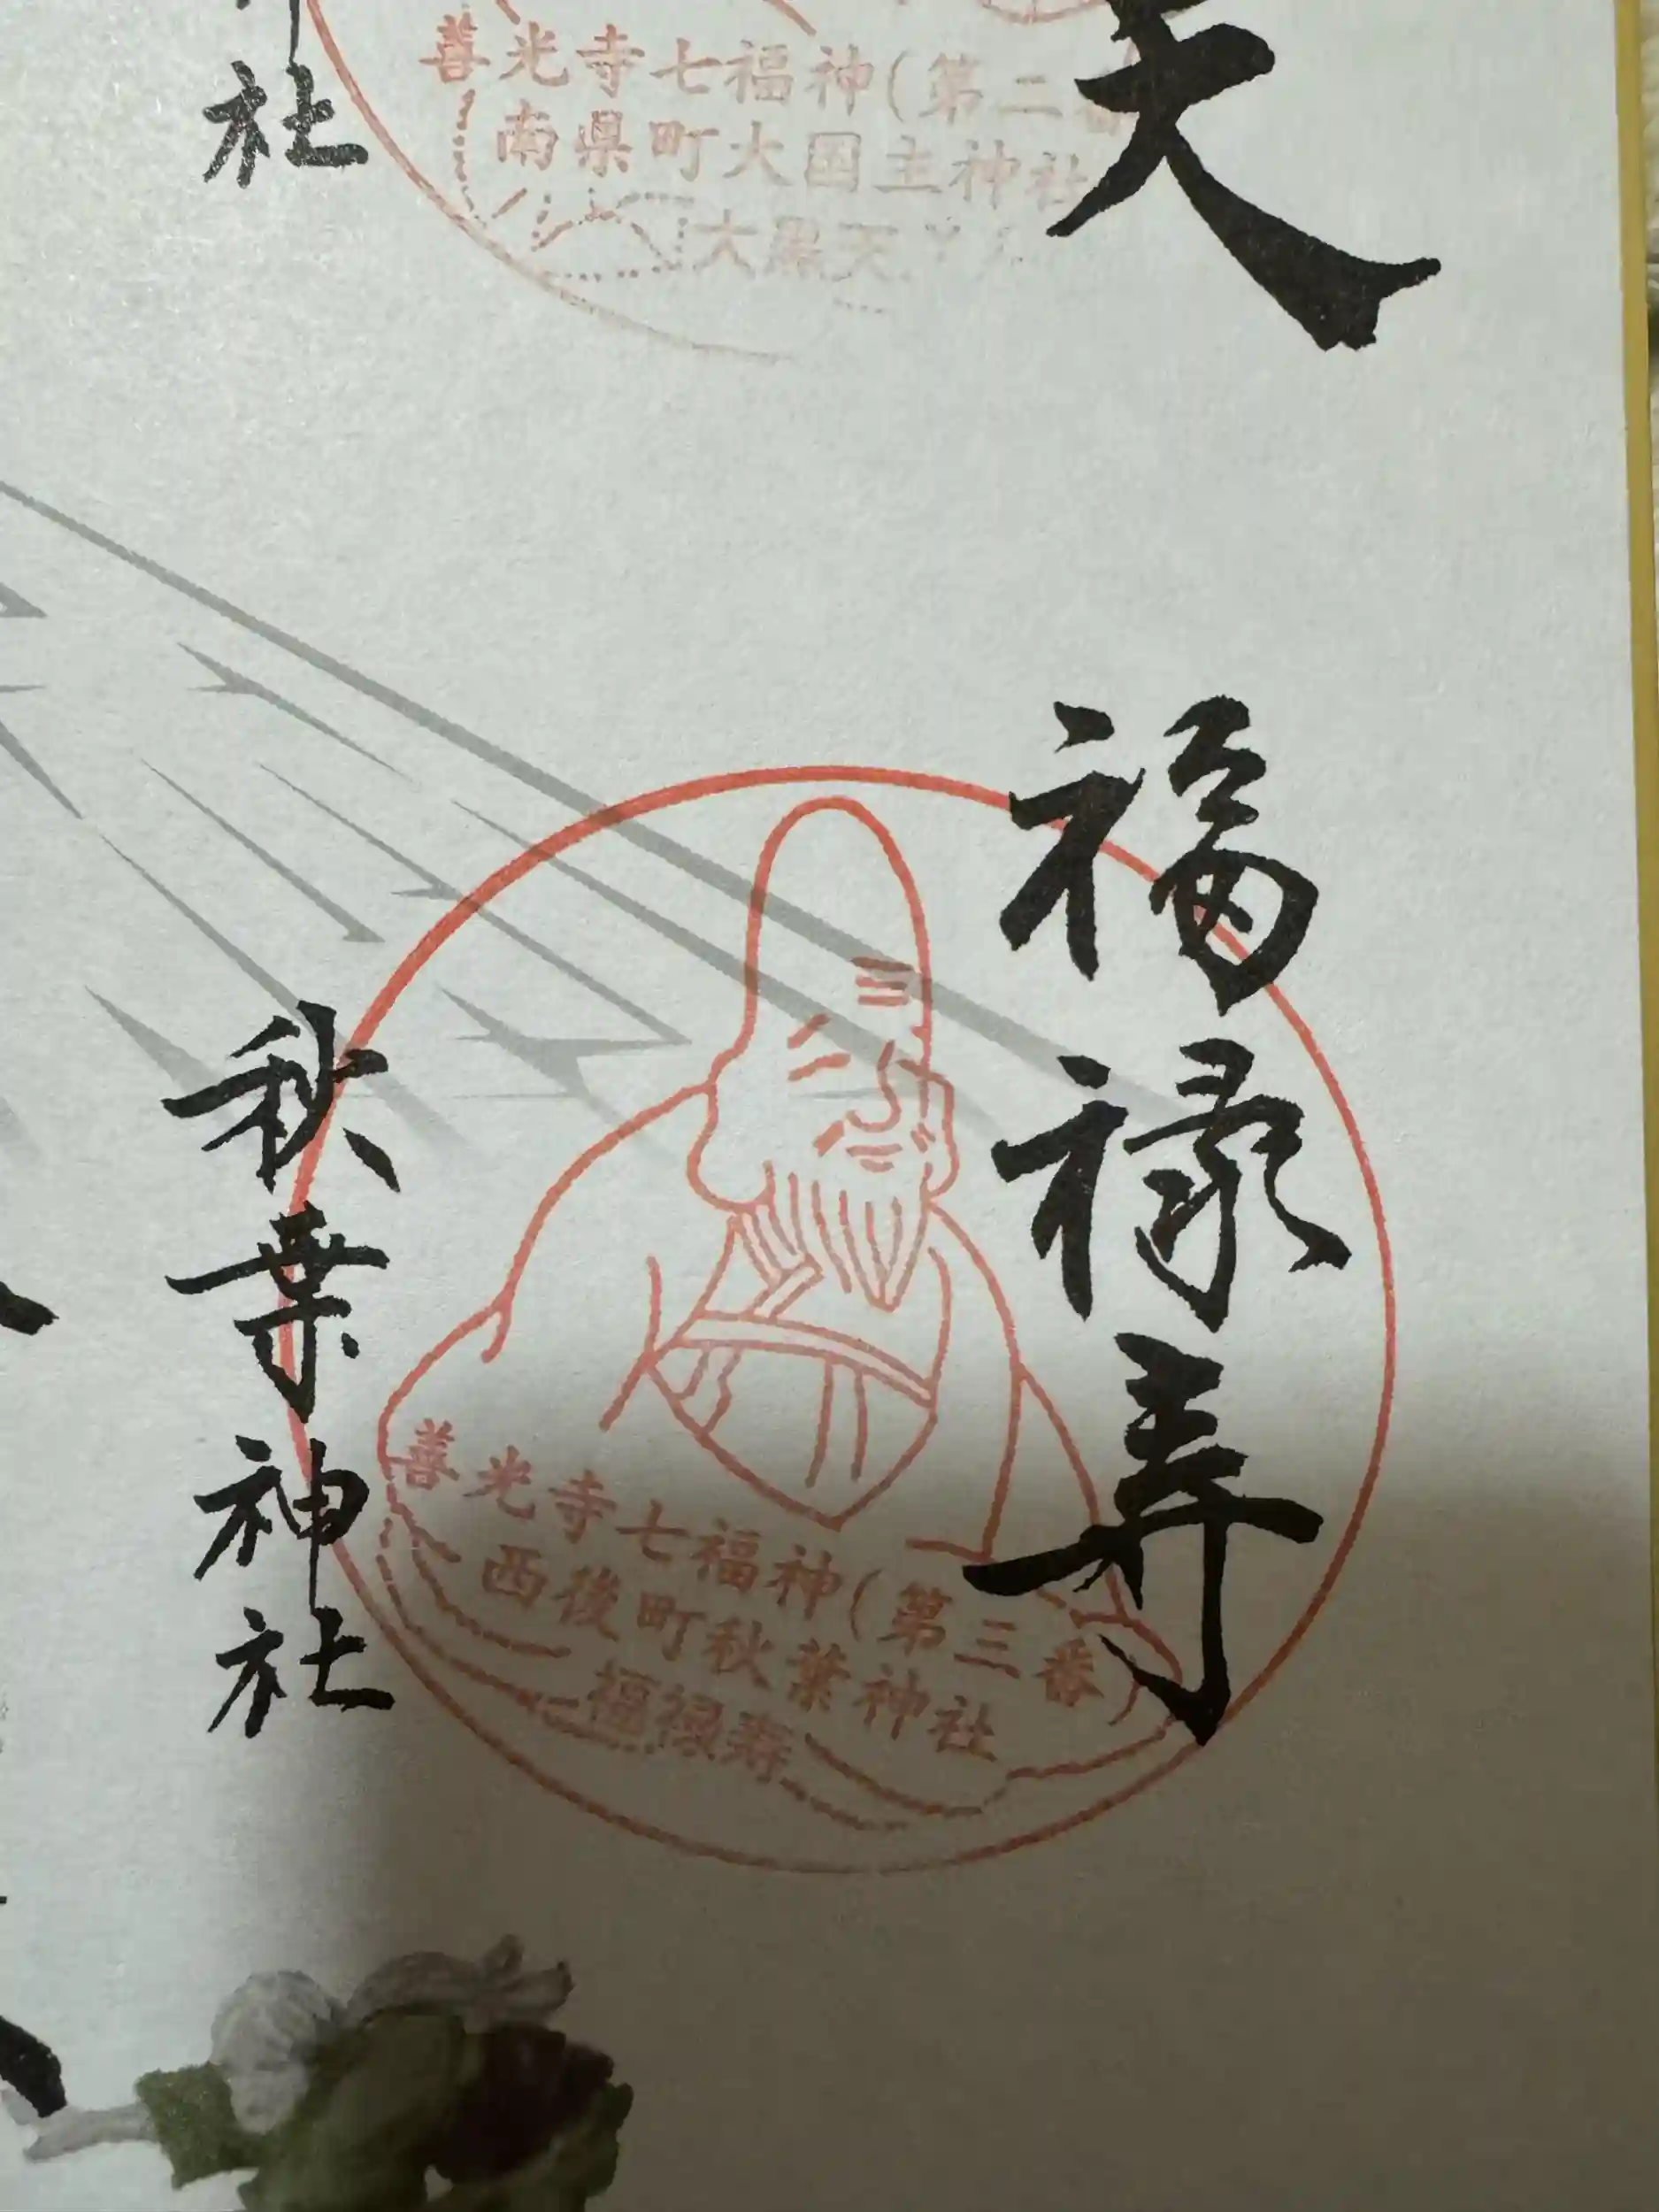 天
善光寺七福神(第二番
南県町大国主神社
大黒天
社
福禄寿
秋葉神社
善光寺七福神(第三番)
西後町秋葉神社
福禄寿